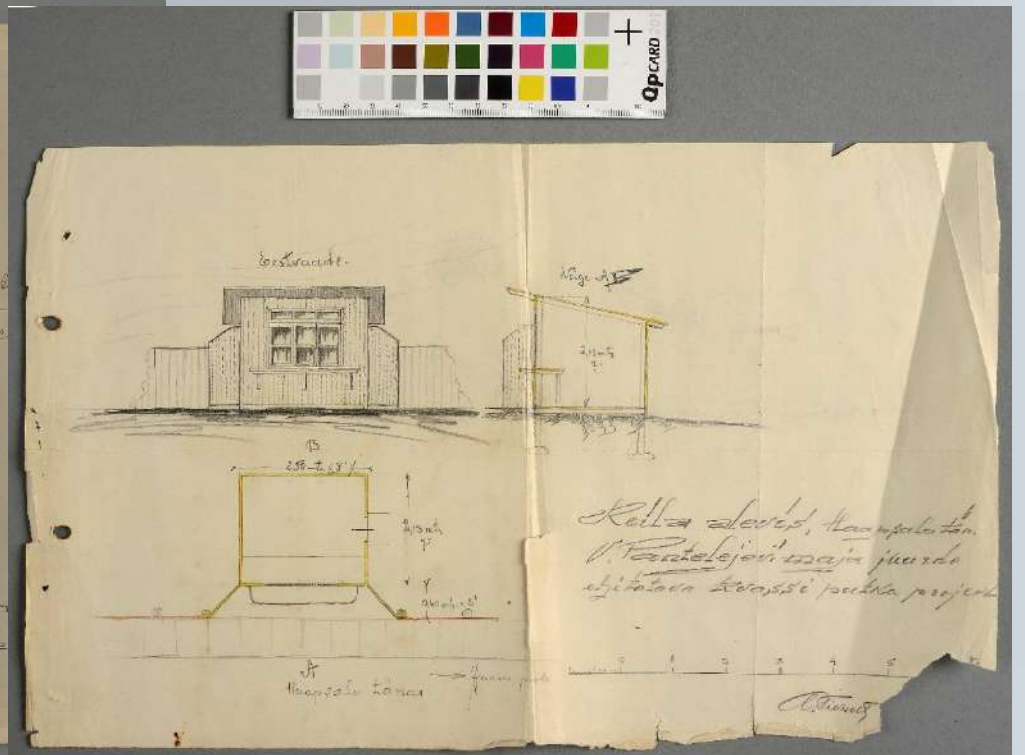 QPCARD 201
Eestvaade.
Lõige A B
2,13 mtr.
7'
B
2,13 mtr.
7'
A
Haapsalu tänav
Keila alevis, Haapsalu tän.
V. Pantelejevi maja juurde
ehitatava kvassi putka projekt
1 2 3 4 5